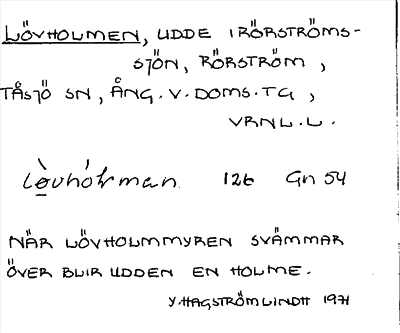 LÖVHOLMEN, UDDE I RÖRSTRÖMS-
SJÖN, RÖRSTRÖM,
TÅSJÖ SN, ÅNG. V. DOMS. TG,
VRNL. L.
126 Gn 54
NÄR LÖVHOLMMYREN SVÄMMAR
ÖVER BLIR UDDEN EN HOLME.
Y. HAGSTRÖM LINDH 1971